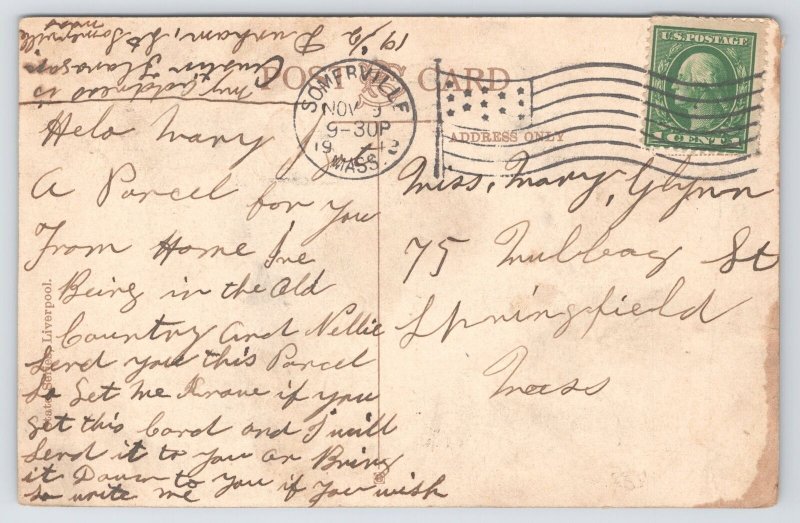 POST CARD
ADDRESS ONLY
SOMERVILLE
NOV 9
9-30P
1912
MASS.
U.S. POSTAGE
1 CENT 1
Helo Mary
A Parcel for you
From Home Ive
Being in the Old
Country And Nellie
Send you this Parcel
So Let me Know if you
get this Card and I will
Send it to you or Bring
it Down to you if you wish
So write me
Miss, Mary, Glynn
75 St
Springfield
Mass
My address is
19 1/2 Durham, St Somerville
Mass
Liverpool.